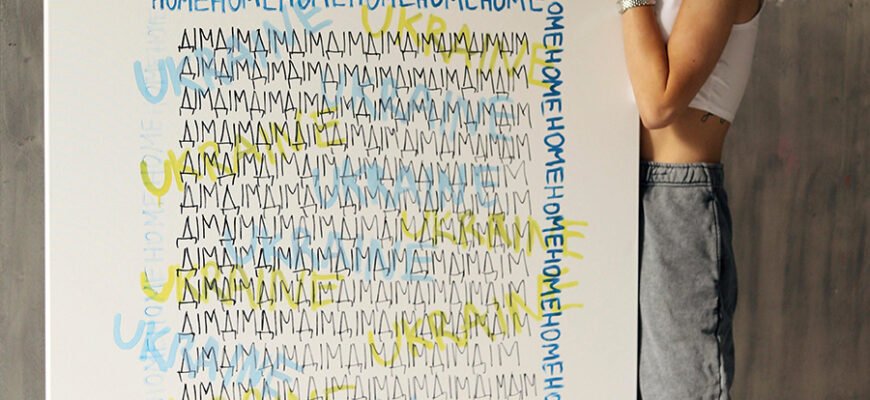 HOMEHOMEHOMEHOMEHOMEHOME
ДІМДІМДІМДІМДІМДІМДІМДІМДІМ
ДІМДІМДІМДІМДІМДІМДІМДІМДІМ
ДІМДІМДІМДІМДІМДІМДІМДІМДІМ
ДІМДІМДІМДІМДІМДІМДІМДІМДІМ
ДІМДІМДІМДІМДІМДІМДІМДІМДІМ
ДІМДІМДІМДІМДІМДІМДІМДІМДІМ
ДІМДІМДІМДІМДІМДІМДІМДІМДІМ
ДІМДІМДІМДІМДІМДІМДІМДІМДІМ
ДІМДІМДІМДІМДІМДІМДІМДІМДІМ
ДІМДІМДІМДІМДІМДІМДІМДІМДІМ
ДІМДІМДІМДІМДІМДІМДІМДІМДІМ
ДІМДІМДІМДІМДІМДІМДІМДІМДІМ
UKRAINE
UKRAINE
UKRAINE
UKRAINE
UKRAINE
UKRAINE
UKRAINE
UKRAINE
UKRAINE
UKRAINE
OMEHOMEHOMEHOMEHOMEHOMEHOME
HOMEHOMEHOMEHOMEHOME